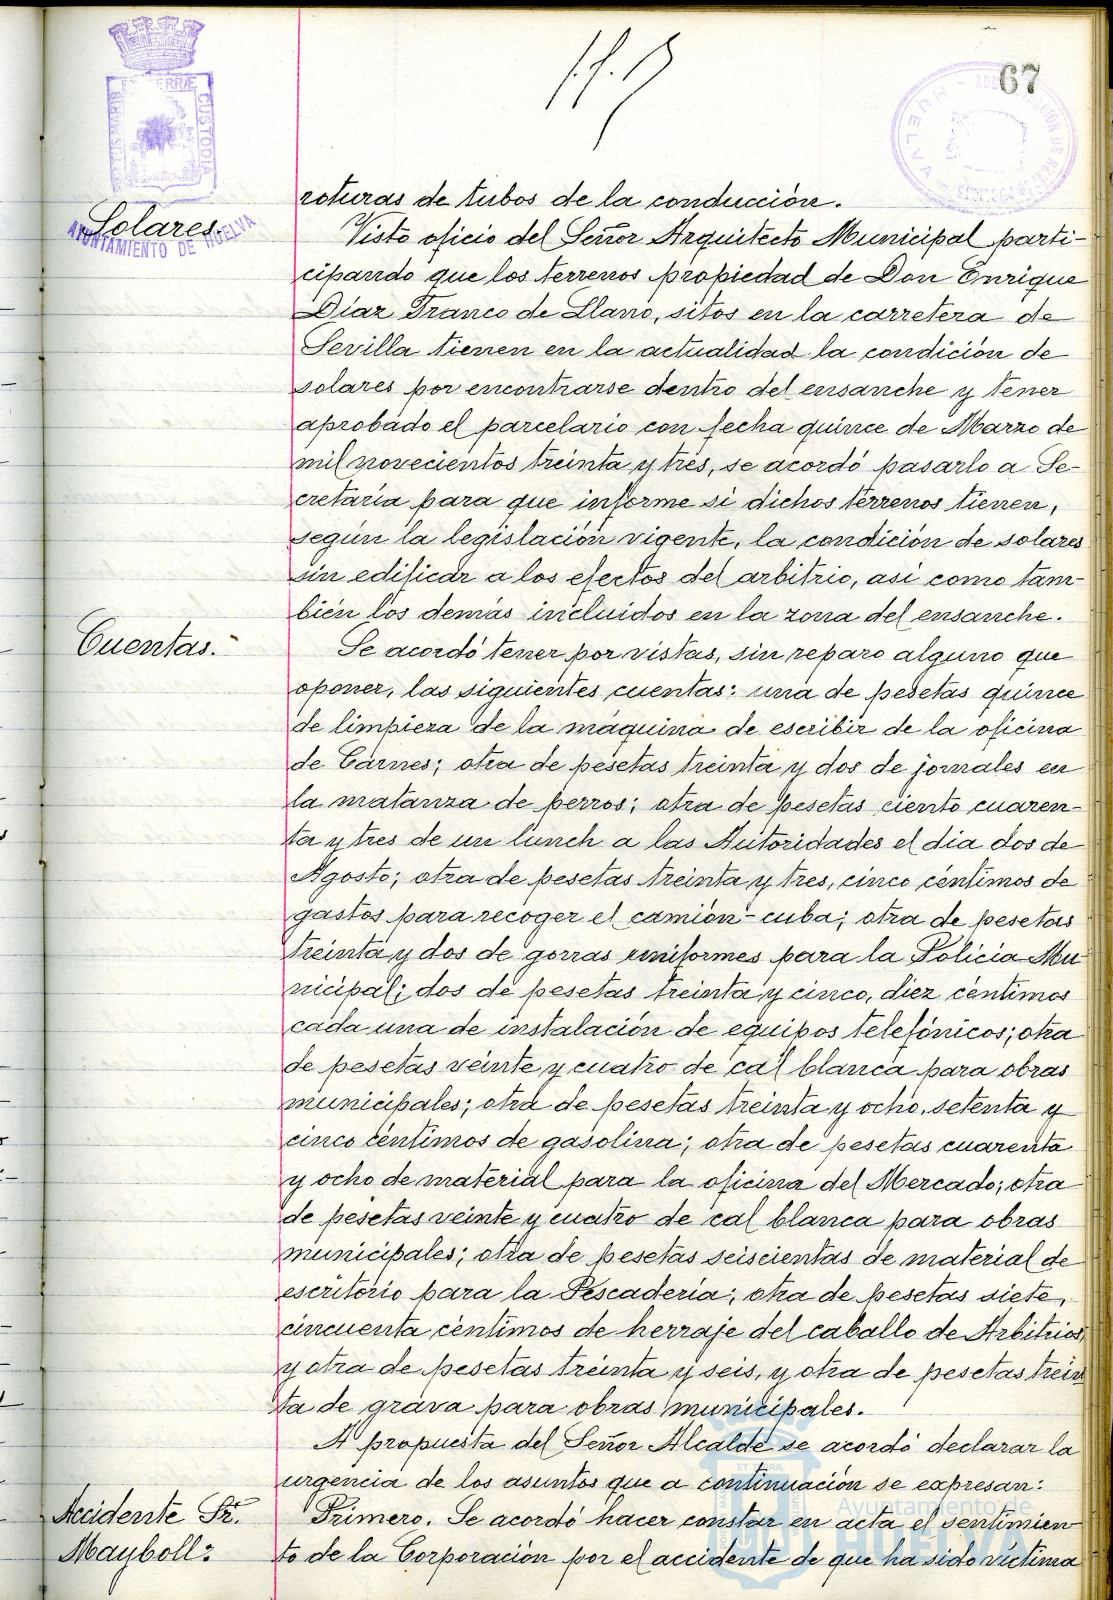 67
Solares.
AYUNTAMIENTO DE HUELVA
roturas de tubos de la conducción.
Visto oficio del Señor Arquitecto Municipal parti-
cipando que los terrenos propiedad de Don Enrique
Díaz Franco de Llano, sitos en la carretera de
Sevilla tienen en la actualidad la condición de
solares por encontrarse dentro del ensanche y tener
aprobado el parcelario con fecha quince de Marzo de
mil novecientos treinta y tres, se acordó pasarlo a Se-
cretaría para que informe si dichos terrenos tienen,
según la legislación vigente, la condición de solares
sin edificar a los efectos del arbitrio, así como tam-
bién los demás incluidos en la zona del ensanche.
Cuentas.
Se acordó tener por vistas, sin reparo alguno que
oponer, las siguientes cuentas: una de pesetas quince
de limpieza de la máquina de escribir de la oficina
de Carnes; otra de pesetas treinta y dos de jornales en
la matanza de perros; otra de pesetas ciento cuaren-
ta y tres de un lunch a las Autoridades el día dos de
Agosto; otra de pesetas treinta y tres, cinco céntimos de
gastos para recoger el camión-cuba; otra de pesetas
treinta y dos de gorras uniformes para la Policía Mu
nicipal; dos de pesetas treinta y cinco, diez céntimos
cada una de instalación de equipos telefónicos; otra
de pesetas veinte y cuatro de cal blanca para obras
municipales; otra de pesetas treinta y ocho, setenta y
cinco céntimos de gasolina; otra de pesetas cuarenta
y ocho de material para la oficina del Mercado; otra
de pesetas veinte y cuatro de cal blanca para obras
municipales; otra de pesetas seiscientas de material de
escritorio para la Pescadería; otra de pesetas siete,
cincuenta céntimos de herraje del caballo de Arbitrios,
y otra de pesetas treinta y seis, y otra de pesetas trein
ta de grava para obras municipales.
A propuesta del Señor Alcalde se acordó declarar la
urgencia de los asuntos que a continuación se expresan:
Accidente Sr.
Mayboll:
Primero. Se acordó hacer constar en acta el sentimien
to de la Corporación por el accidente de que ha sido víctima
Ayuntamiento de
HUELVA